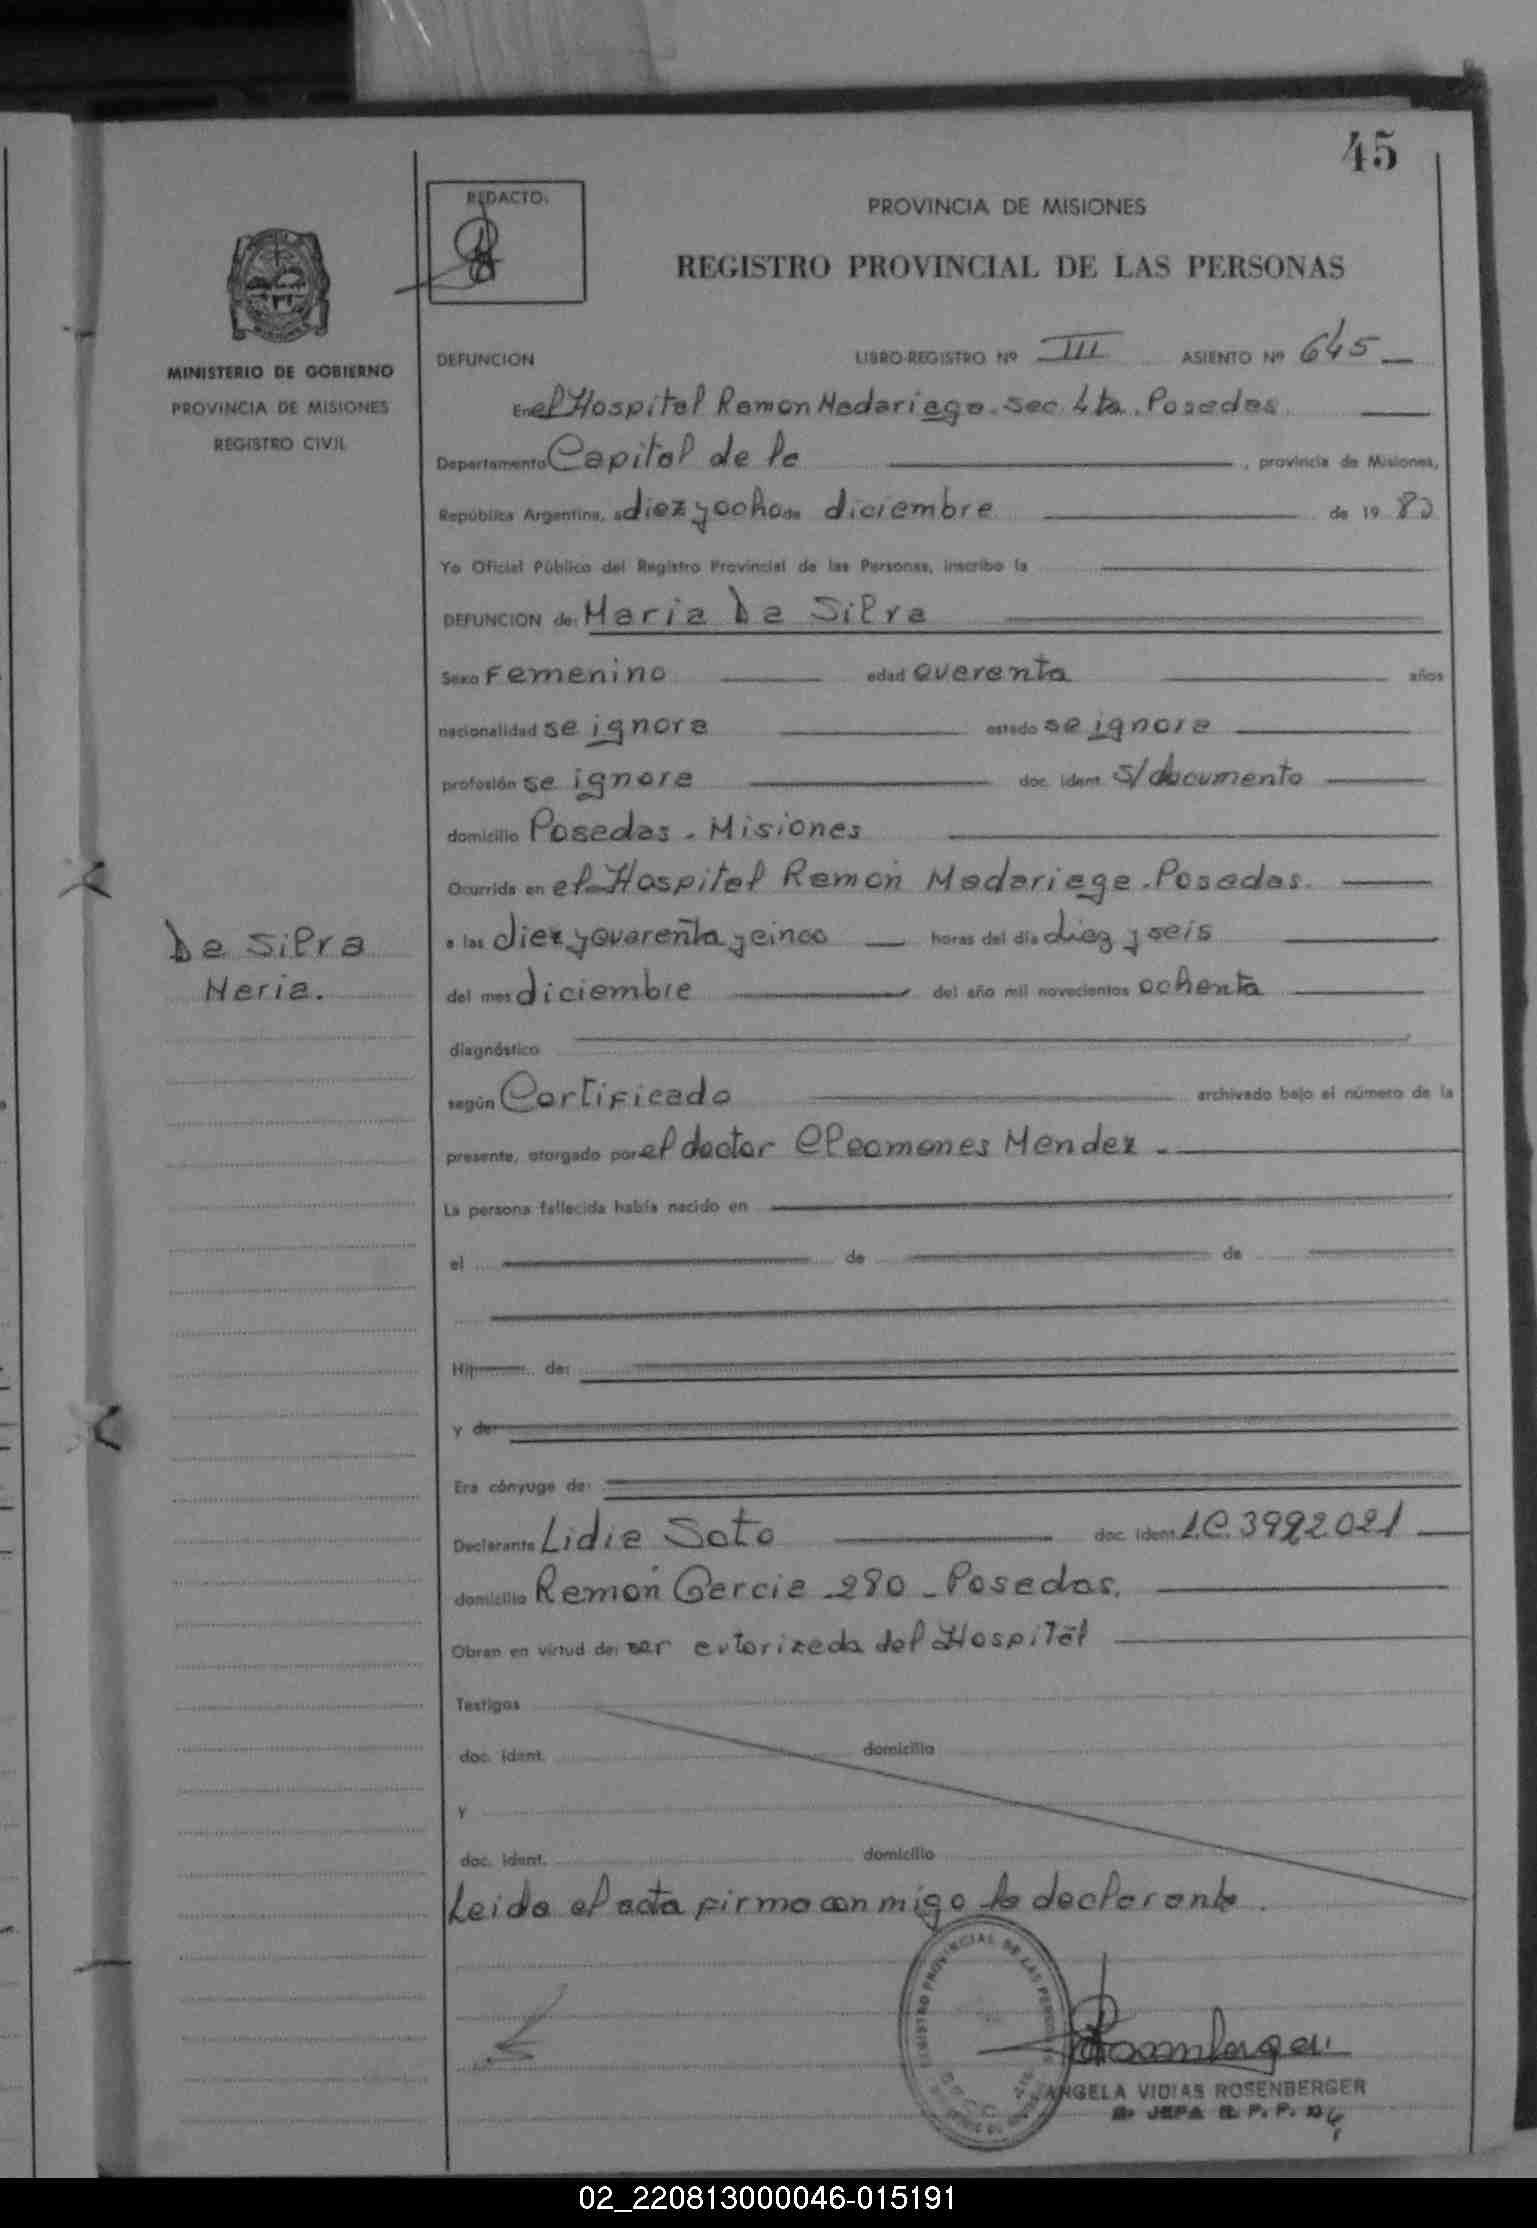 45
REDACTO:
PROVINCIA DE MISIONES
REGISTRO PROVINCIAL DE LAS PERSONAS
MINISTERIO DE GOBIERNO
PROVINCIA DE MISIONES
REGISTRO CIVIL
DEFUNCION LIBRO-REGISTRO Nº III ASIENTO Nº 645
En el Hospital Ramon Madariaga. Sec 4ta. Posadas.
Departamento Capital de la , provincia de Misiones,
República Argentina, a diez y ocho de diciembre de 19 80
Yo Oficial Público del Registro Provincial de las Personas, inscribo la
DEFUNCION de: Maria Da Silva
Sexo Femenino edad Cuarenta años
nacionalidad se ignora estado se ignora
profesión se ignora doc. ident. S/documento
domicilio Posadas - Misiones
Ocurrida en el Hospital Ramon Madariaga. Posadas.
a las diez y cuarenta y cinco horas del día diez y seis
del mes diciembre del año mil novecientos ochenta
Da Silva
Maria.
diagnóstico
según Certificado archivado bajo el número de la
presente, otorgado por el doctor Cleomenes Mendez
La persona fallecida había nacido en
el de de
Hij de:
y de:
Era cónyuge de:
Declarante Lidia Soto doc. ident. L.C. 3992021
domicilio Ramon Garcia 280 - Posadas.
Obran en virtud de: ser autorizada del Hospital
Testigos
doc. ident. domicilio
y
doc. ident. domicilio
Leida el acta firma con migo la declarante.
REGISTRO PROVINCIAL DE LAS PERSONAS
ANGELA VIDIAS ROSENBERGER
JEFA R. P. P.
02_220813000046-015191